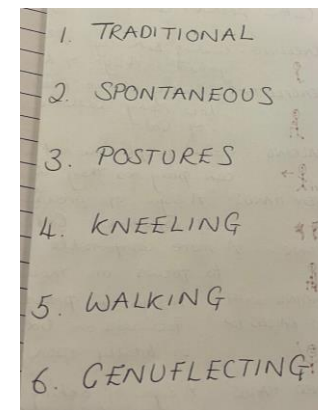 1. TRADITIONAL
2. SPONTANEOUS
3. POSTURES
4. KNEELING
5. WALKING
6. GENUFLECTING